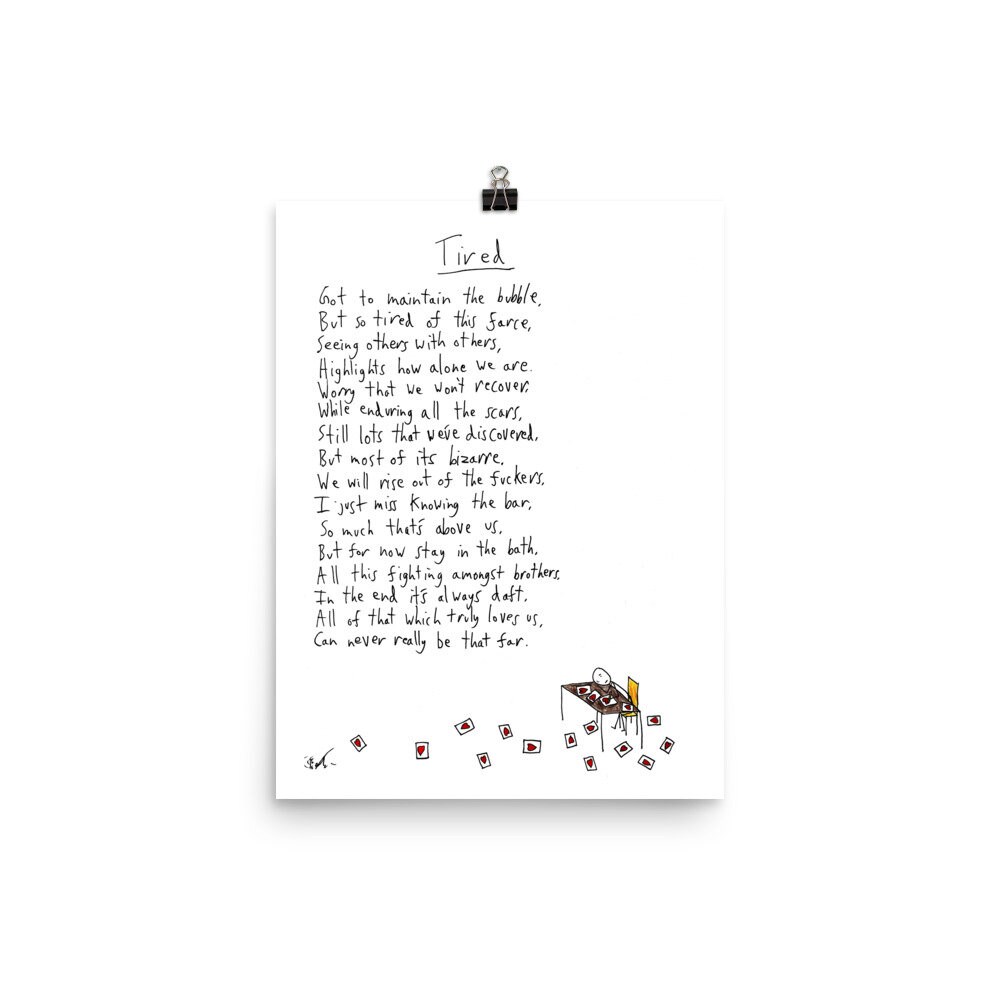 Tired
Got to maintain the bubble,
But so tired of this farce,
Seeing others with others,
Highlights how alone we are.
Worry that we won't recover,
While enduring all the scars,
Still lots that we've discovered,
But most of its bizarre,
We will rise out of the fuckers,
I just miss knowing the bar,
So much that's above us,
But for now stay in the bath,
All this fighting amongst brothers,
In the end it's always daft,
All of that which truly loves us,
Can never really be that far.